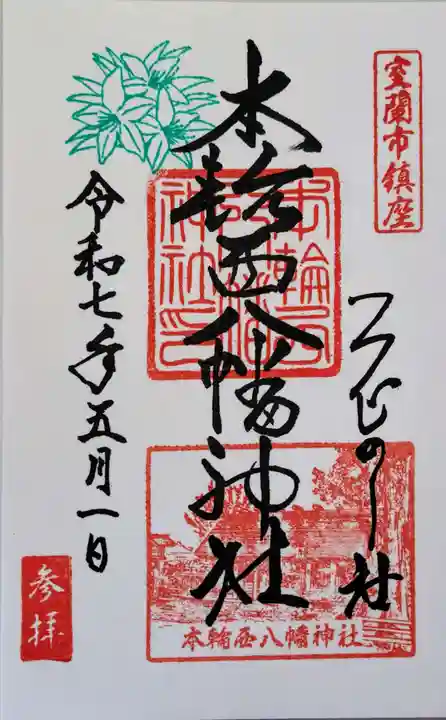 室蘭市鎮座
つつじの社
本輪西八幡神社
本輪西八幡神社印
本輪西八幡神社
令和七年五月一日
参拝